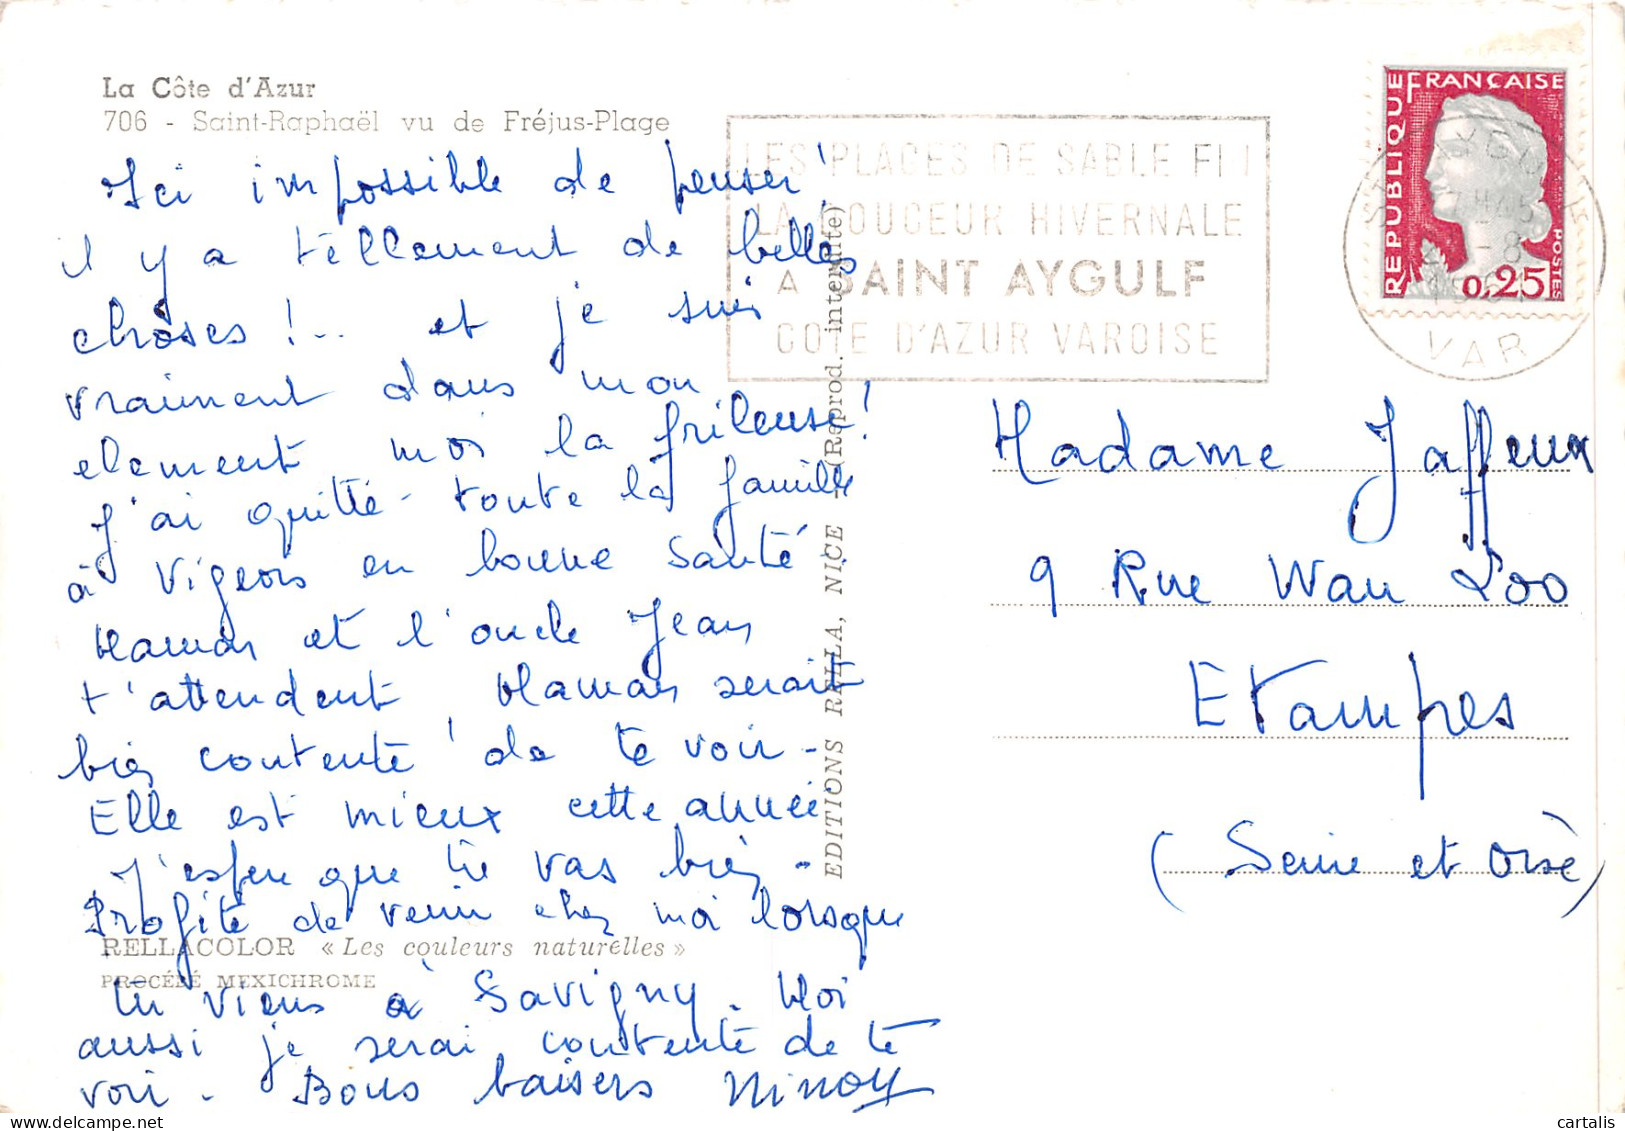 La Côte d'Azur
706 - Saint-Raphaël vu de Fréjus-Plage
Ici impossible de penser
il y a tellement de belles
choses !.. et je suis
vraiment dans mon
element, moi la frileuse !
J'ai quitté toute la famille
à Vigeois en bonne santé
Maman et l'oncle Jean
t'attendent, Maman serait
bien contente de te voir -
Elle est mieux cette année
J'espère que tu vas bien -
Profite de venir chez moi lorsque
tu viens à Savigny. Moi
aussi je serai contente de te
voir - Bons baisers Ninou
RELLACOLOR « Les couleurs naturelles »
PROCÉDÉ MEXICHROME
EDITIONS RELLA, NICE - (Reprod. interdite)
LES PLAGES DE SABLE FIN
LA DOUCEUR HIVERNALE
A SAINT AYGULF
COTE D'AZUR VAROISE
REPUBLIQUE FRANÇAISE
POSTES
0,25
VAR
Madame Jaffeux
9 Rue Wan Loo
Etampes
(Seine et Oise)
cartalis